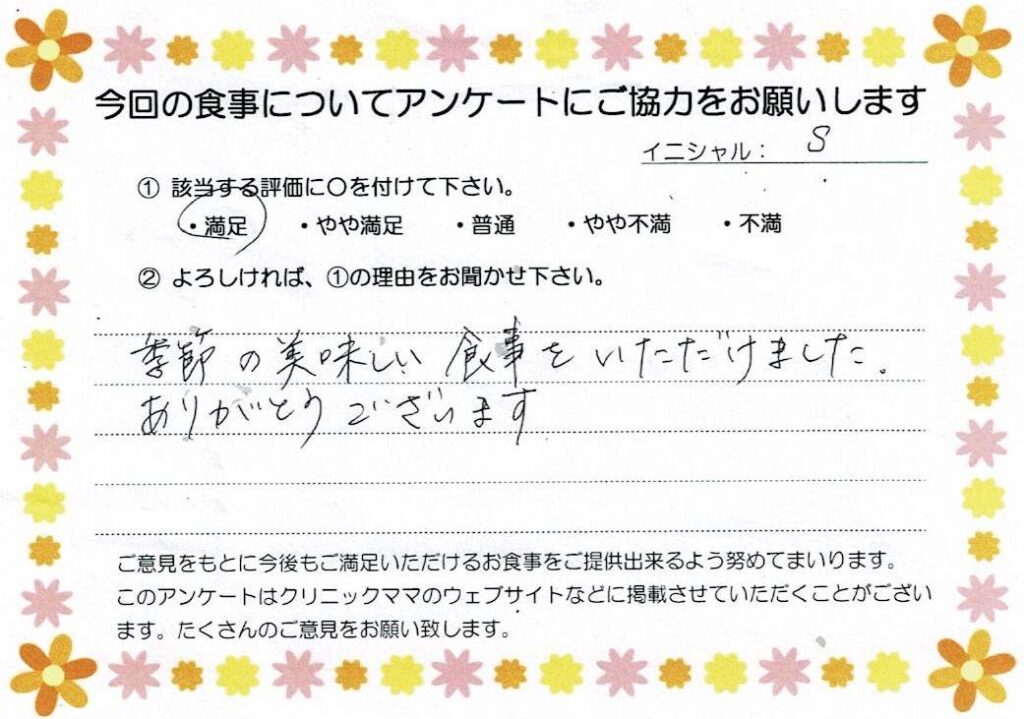 今回の食事についてアンケートにご協力をお願いします
イニシャル： S
① 該当する評価に〇を付けて下さい。
・満足 ・やや満足 ・普通 ・やや不満 ・不満
② よろしければ、①の理由をお聞かせ下さい。
季節の美味しい食事をいただけました。
ありがとうございます
ご意見をもとに今後もご満足いただけるお食事をご提供出来るよう努めてまいります。
このアンケートはクリニックママのウェブサイトなどに掲載させていただくことがござい
ます。たくさんのご意見をお願い致します。